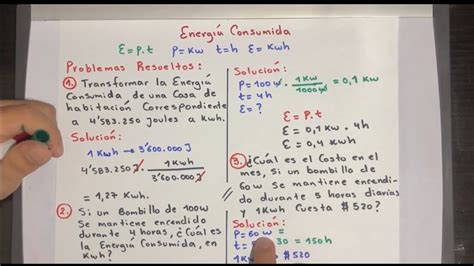 Energía Consumida
E=P.t P=Kw t=h E=Kwh
Problemas Resueltos:
1. Transformar la Energía
Consumida de una Casa de
habitación Correspondiente
a 4'583.250 joules a Kwh.
Solución:
1 Kwh → 3'600.000 J
4'583.250 J . 1 Kwh / 3'600.000 J
= 1,27 Kwh.
2. Si un Bombillo de 100w
Se mantiene encendido
durante 4 horas, ¿Cuál es
la Energía Consumida, en
Kwh?
Solución:
P=100 w . 1 Kw / 1000 w = 0,1 Kw
t = 4h
E = ?
E = P.t
E = 0,1 Kw . 4h
3. ¿Cuál es el Costo en el
mes, Si un bombillo de
60w Se mantiene encendi-
do durante 5 horas diarias
y 1 Kwh Cuesta $520?
Solución:
P=60 w =
30 = 150h
$520